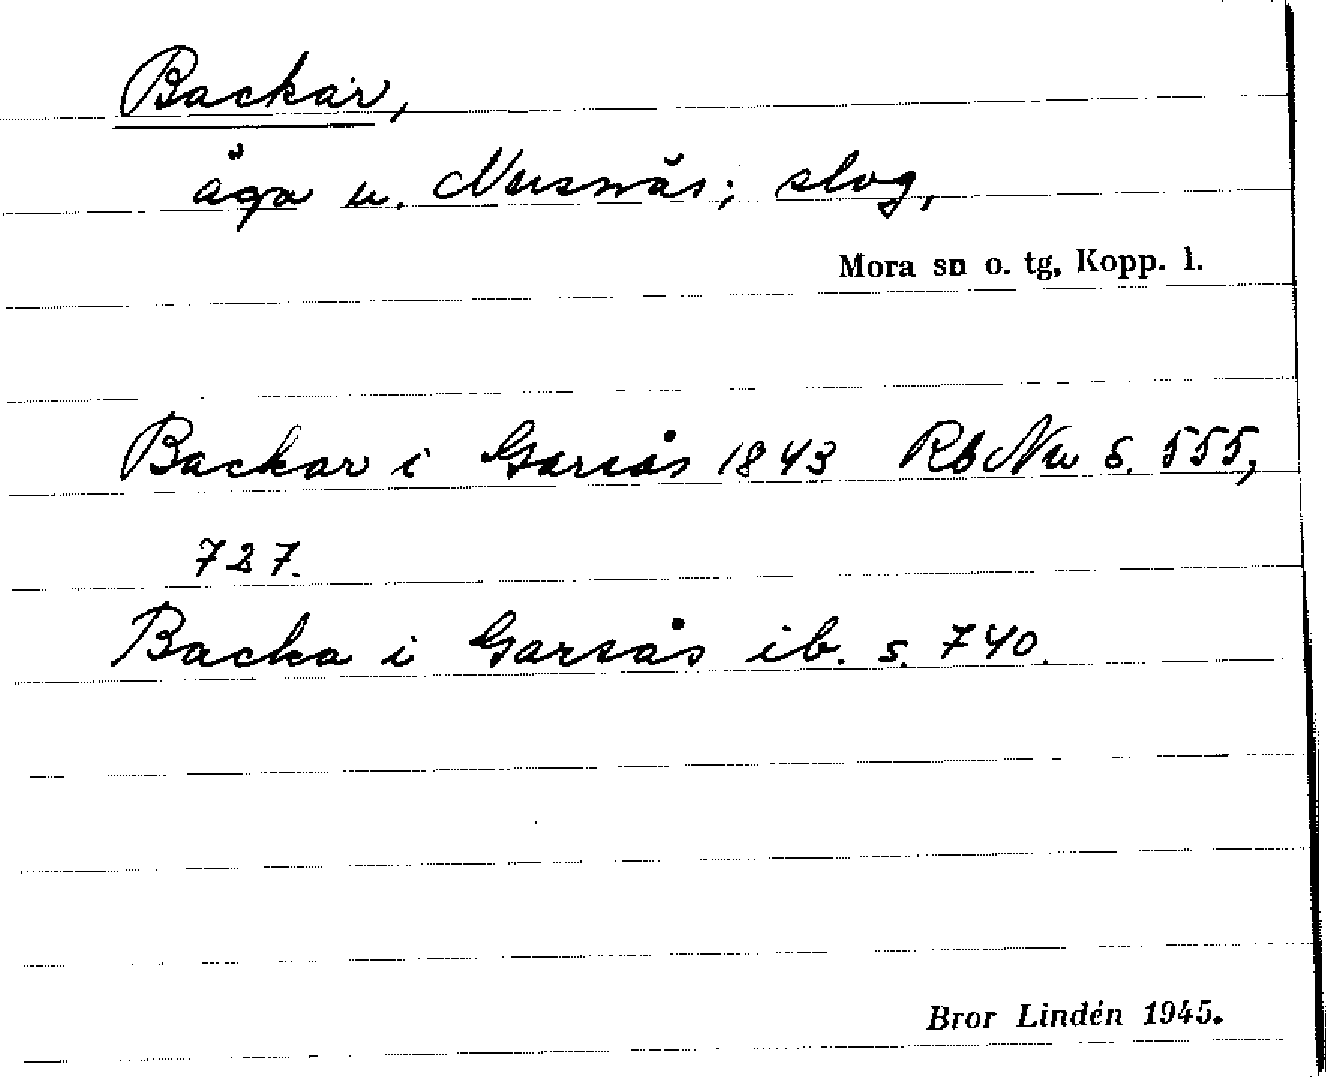 Backar,
äga u. Nusnäs; slog,
Mora sn o. tg, Kopp. l.
Backar i Garsås 1843 Rb Nu s. 555,
727.
Backa i Garsås ib. s. 740.
Bror Lindén 1945.